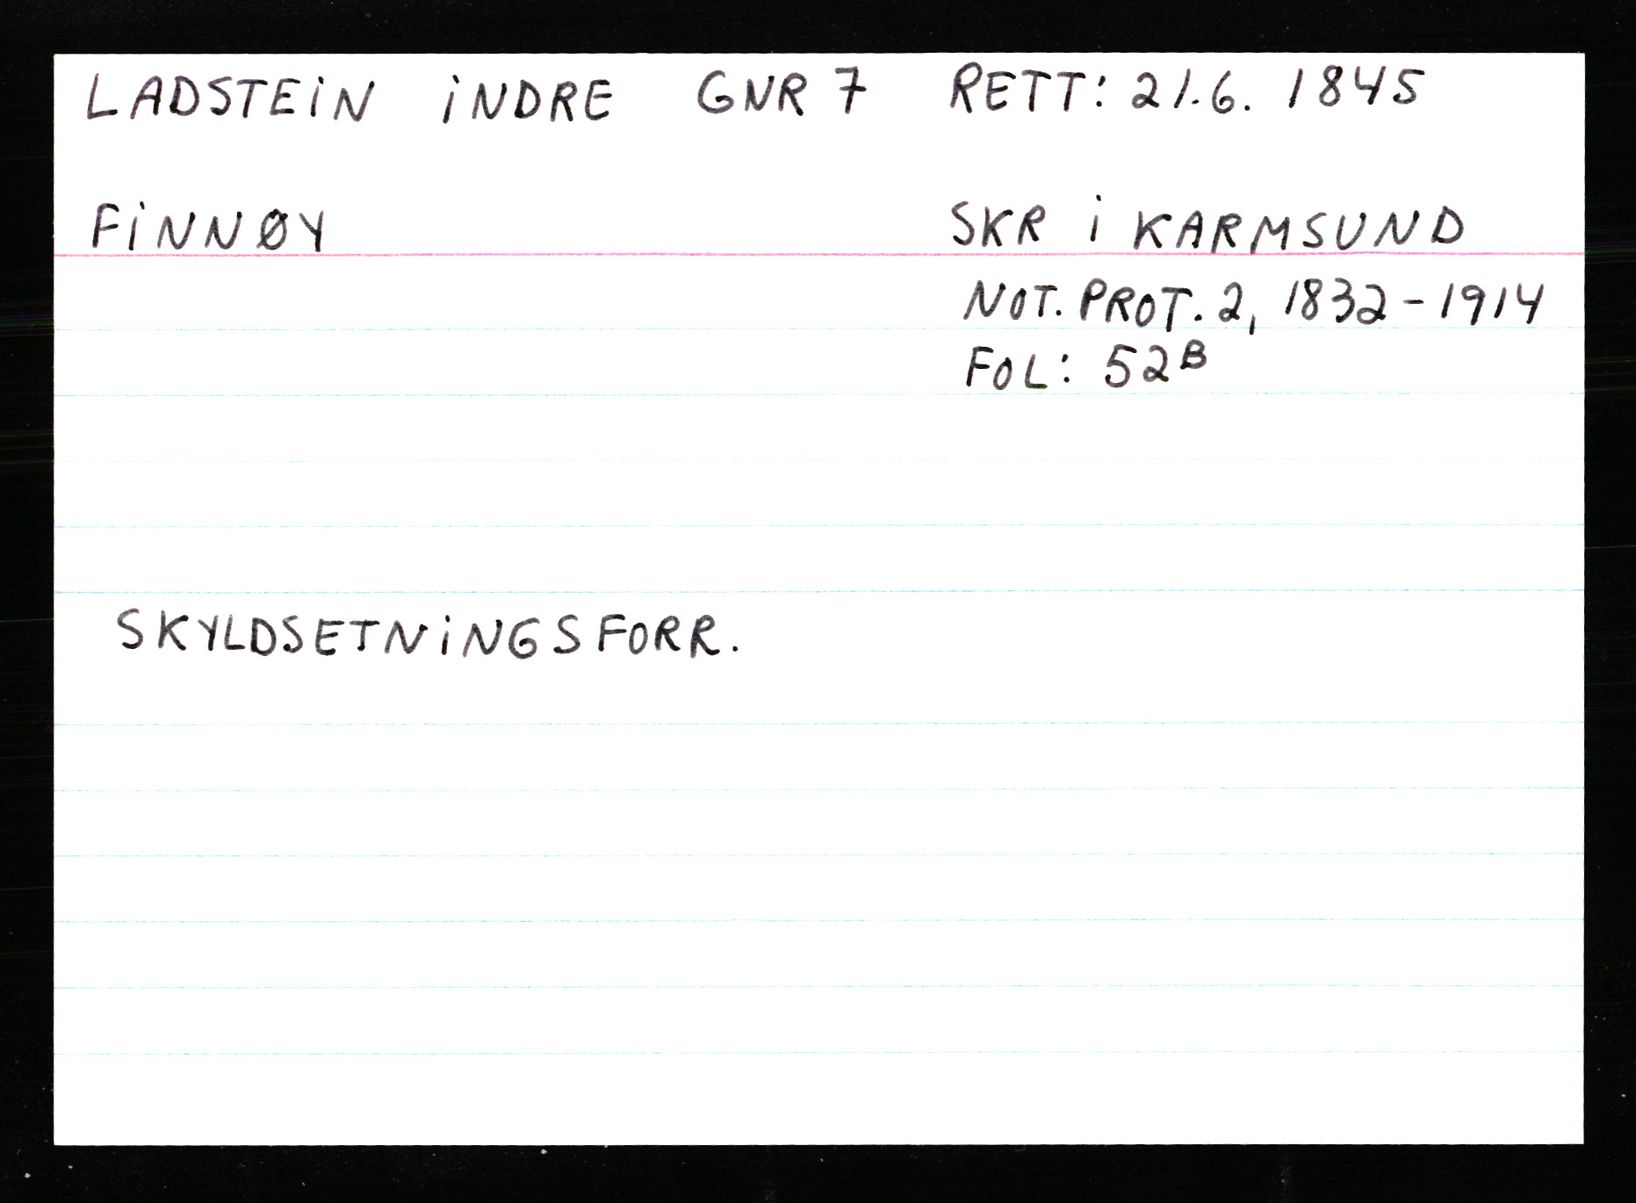 LADSTEIN INDRE GNR 7 RETT: 21.6. 1845
FINNØY SKR I KARMSUND
NOT. PROT. 2, 1832-1914
FOL: 52B
SKYLDSETNINGSFORR.